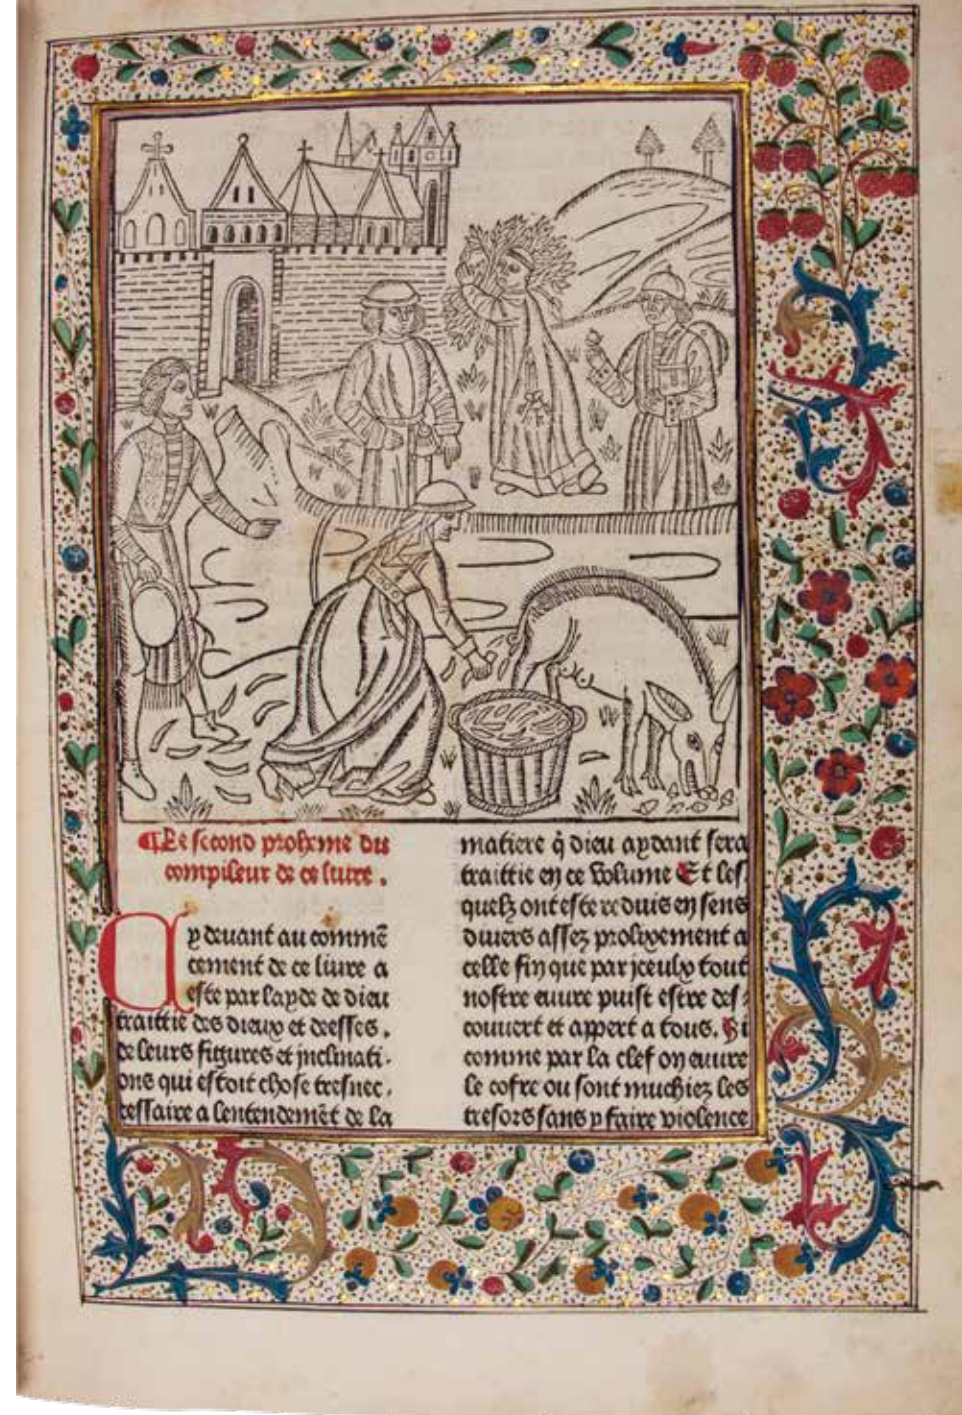 ¶ Le second prohesme du
compileur de ce liure.
Cy deuant au commē
cement de ce liure a
este par layde de dieu
traittie des dieux et deesses.
de leurs figures et inclinati-
ons qui estoit chose tresnec-
cessaire a lentendemēt de la
matiere q̄ dieu aydant sera
traittie en ce volume Et les
quelz ont este reduis en sens
diuers assez prolixement a
celle fin que par iceulx tout
nostre euure puist estre des-
couuert et appert a tous. Si
comme par la clef on euure
le cofre ou sont muchiez les
tresors sans y faire violence